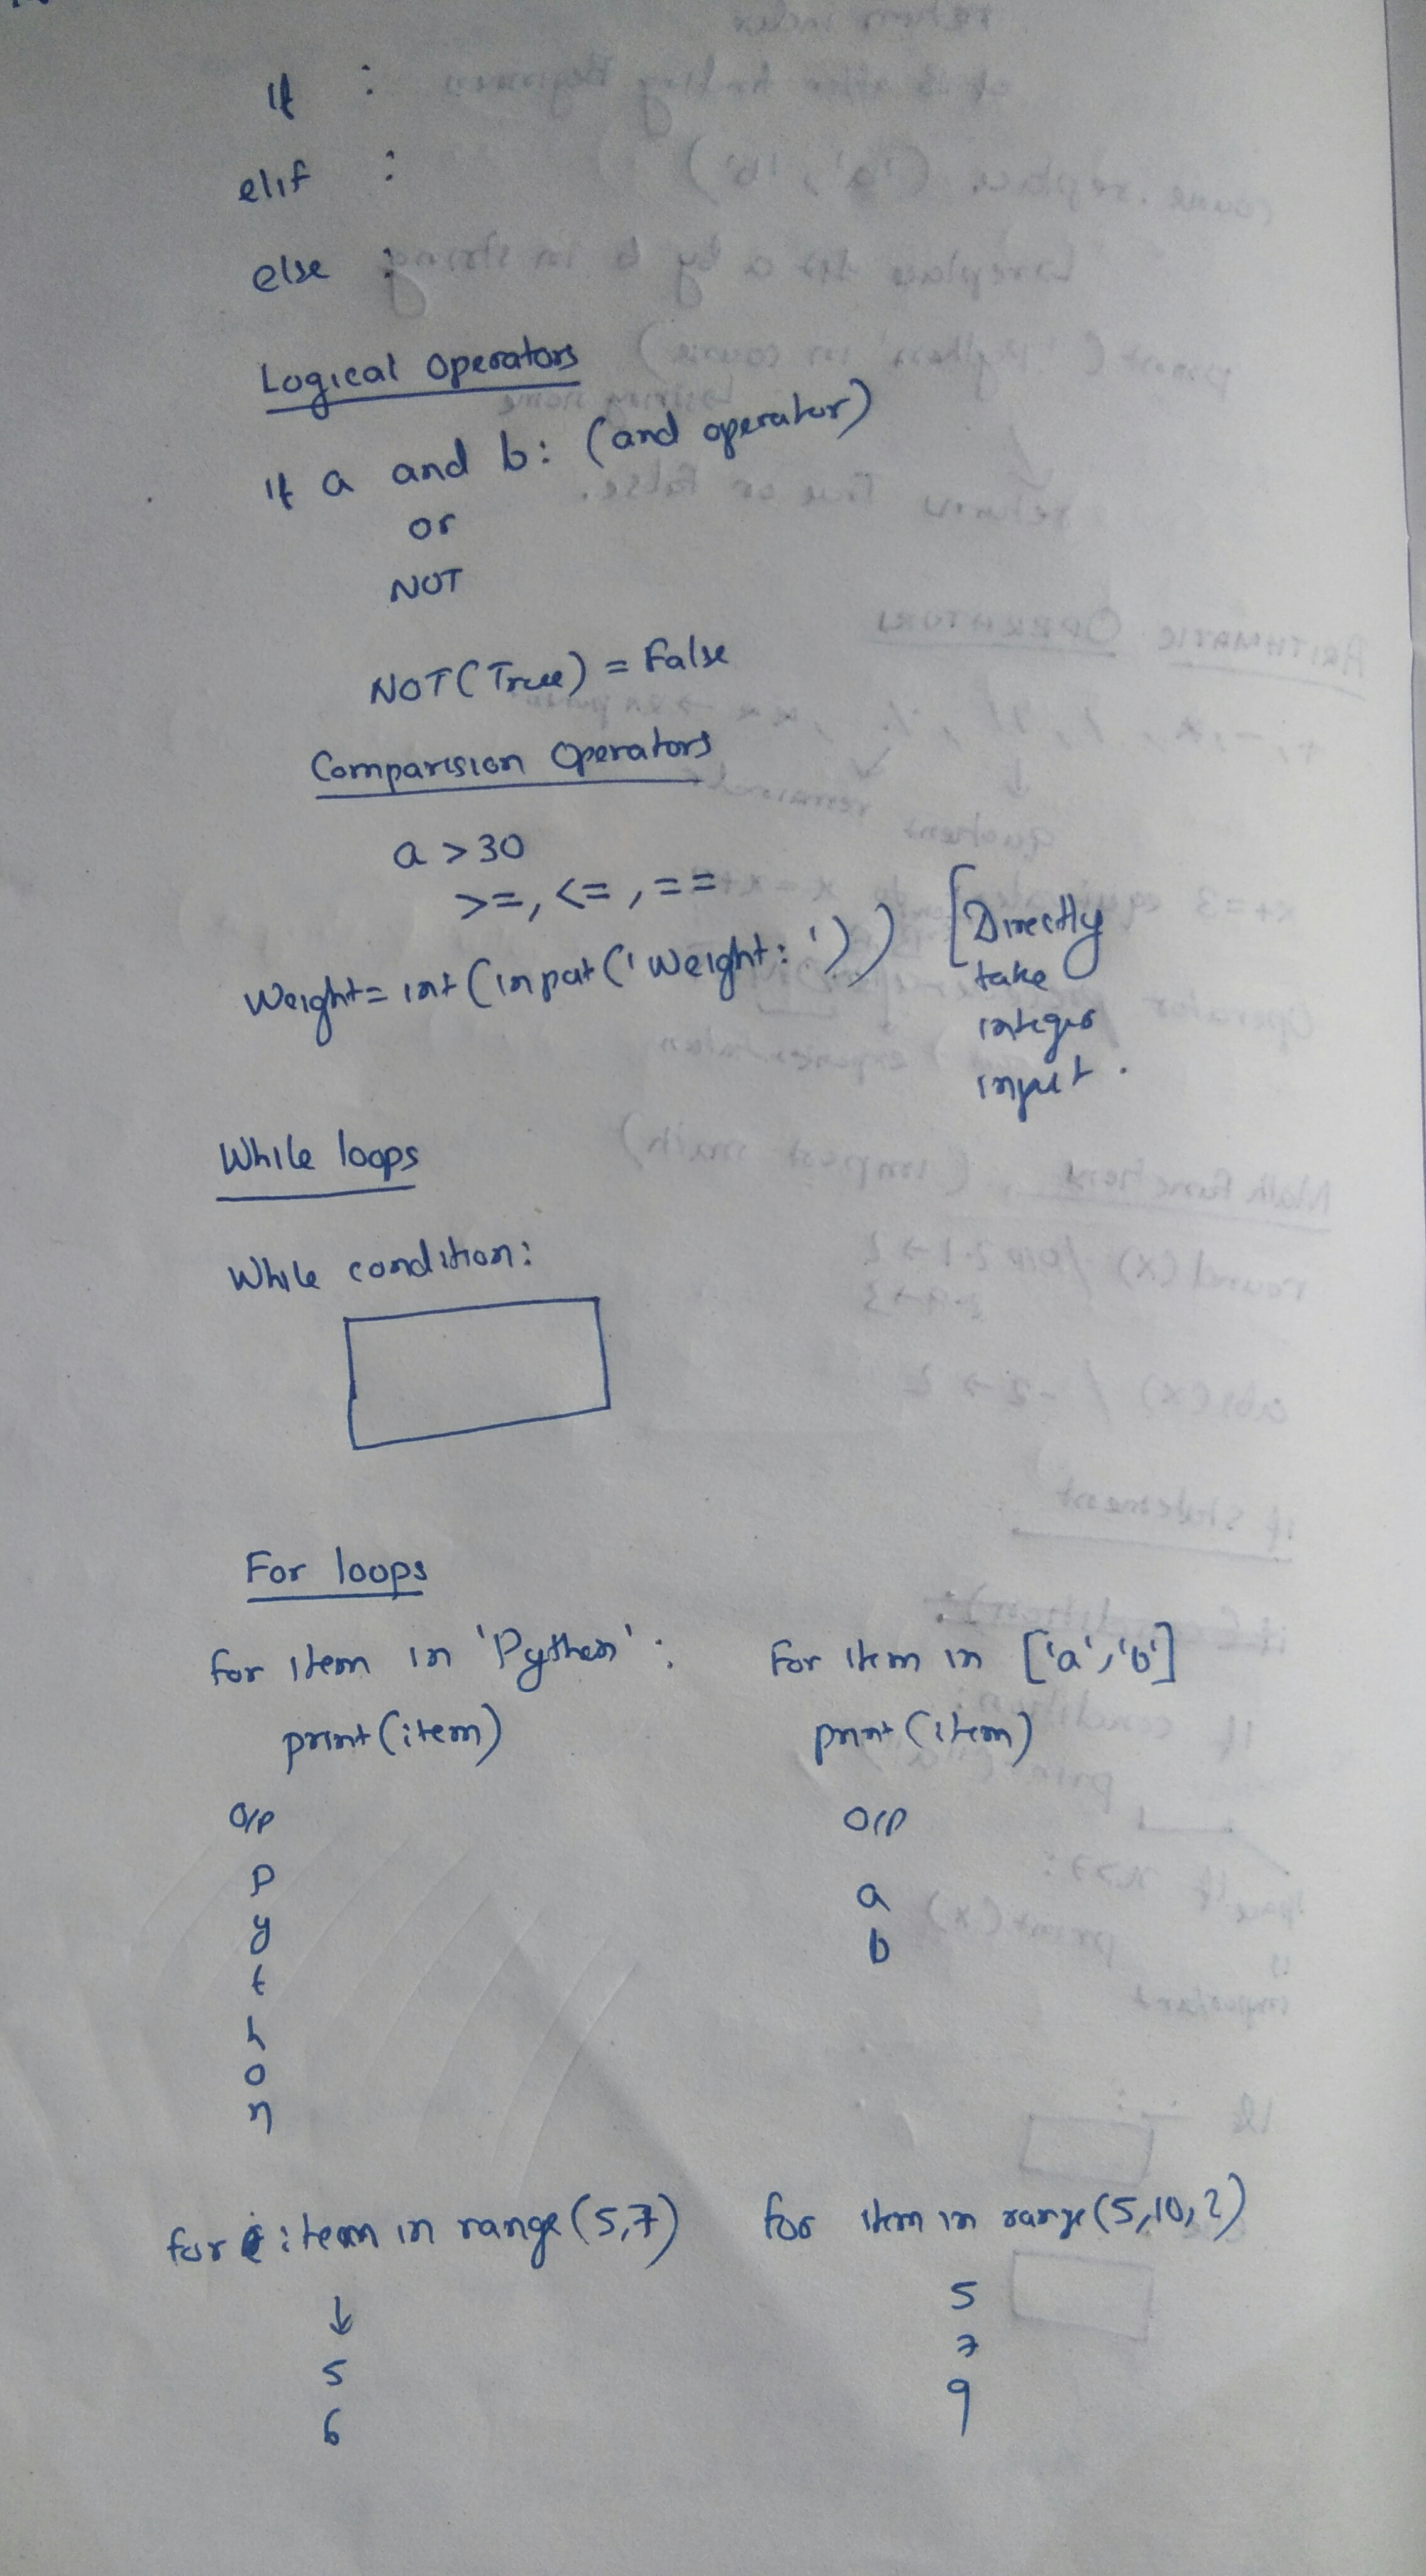 if :
elif :
else :
Logical Operators
if a and b: (and operator)
or
NOT
NOT(True) = False
Comparision Operators
a >30
>=, <=, ==
Weight= int(input('Weight: ')) [Directly
take
integer
input.
While loops
While condition:
For loops
for item in 'Python':
print(item)
O/P
P
y
t
h
o
n
for item in ['a','b']
print(item)
O/P
a
b
for item in range(5,7)
↓
5
6
for item in range(5,10,2)
5
7
9